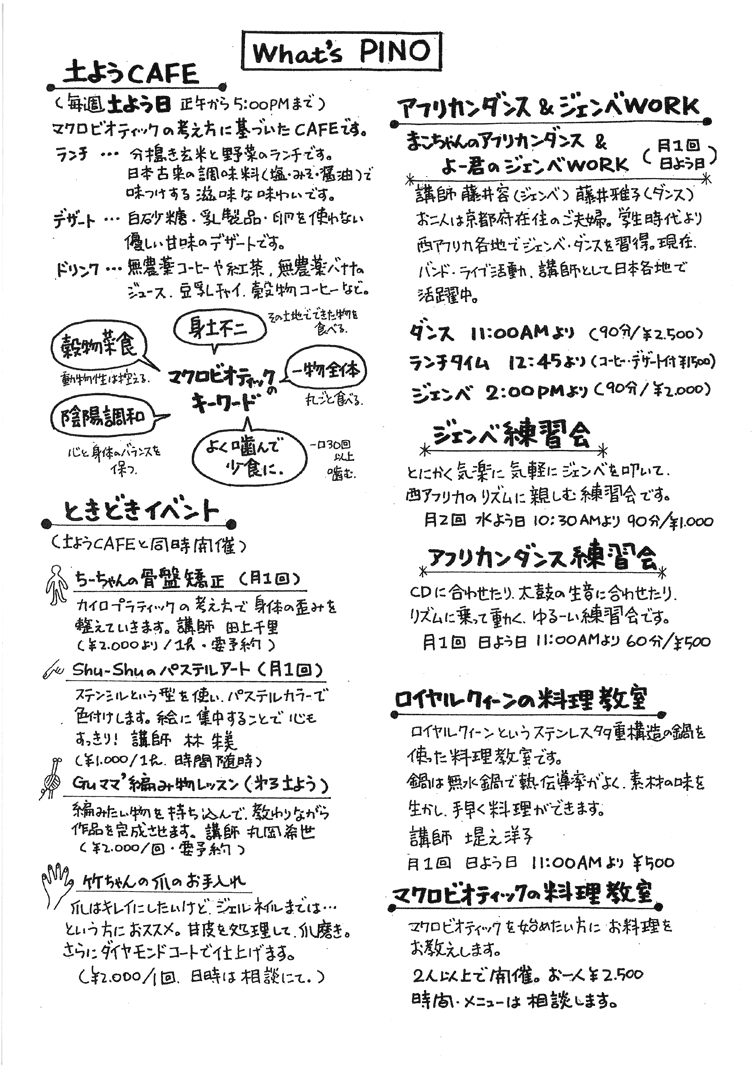 What's PINO
土ようCAFE
(毎週 土よう日 正午から5:00PMまで)
マクロビオティックの考え方に基づいたCAFEです。
ランチ … 分搗き玄米と野菜のランチです。
日本古来の調味料(塩・みそ・醤油)で
味つけする滋味な味わいです。
デザート … 白砂糖・乳製品・卵を使わない
優しい甘味のデザートです。
ドリンク … 無農薬コーヒーや紅茶、無農薬バナナの
ジュース、豆乳チャイ、穀物コーヒーなど。
穀物菜食
動物性は控える.
身土不二
その土地でできた物を
食べる.
マクロビオティック
の
キーワード
一物全体
丸ごと食べる.
陰陽調和
心と身体のバランスを
保つ.
よく噛んで
少食に.
一口30回
以上
噛む.
ときどきイベント
(土ようCAFEと同時開催)
ちーちゃんの骨盤矯正(月1回)
カイロプラティックの考え方で身体の歪みを
整えていきます。講師 田上千里
(¥2.000より/1h・要予約)
Shu-Shuのパステルアート(月1回)
ステンシルという型を使い、パステルカラーで
色付けします。絵に集中することで心も
すっきり! 講師 林 朱美
(¥1.000/1h. 時間随時)
Guママ'編み物レッスン(第3土よう)
編みたい物を持ち込んで、教わりながら
作品を完成させます。講師 丸岡希世
(¥2.000/回・要予約)
竹ちゃんの爪のお手入れ
爪はキレイにしたいけど、ジェルネイルまでは…
という方におススメ。甘皮を処理して、爪磨き。
さらにダイヤモンドコートで仕上げます。
(¥2.000/1回. 日時は相談にて.)
アフリカンダンス&ジェンベWORK
まこちゃんのアフリカンダンス &
よー君のジェンベWORK (月1回 日よう日)
講師 藤井容(ジェンベ) 藤井雅子(ダンス)
お二人は京都府在住のご夫婦。学生時代より
西アフリカ各地でジェンベ・ダンスを習得。現在、
バンド・ライブ活動、講師として日本各地で
活躍中。
ダンス 11:00AMより (90分/¥2.500)
ランチタイム 12:45より(コーヒー・デザート付¥1500)
ジェンベ 2:00PMより(90分/¥2.000)
ジェンベ練習会
とにかく気楽に気軽にジェンベを叩いて、
西アフリカのリズムに親しむ練習会です。
月2回 水よう日 10:30AMより 90分/¥1.000
アフリカンダンス練習会
CDに合わせたり、太鼓の生音に合わせたり、
リズムに乗って動く、ゆるーい練習会です。
月1回 日よう日 11:00AMより 60分/¥500
ロイヤルクィーンの料理教室
ロイヤルクィーンというステンレス多重構造の鍋を
使った料理教室です。
鍋は無水鍋で熱伝導率がよく、素材の味を
生かし、手早く料理ができます。
講師 堤え洋子
月1回 日よう日 11:00AMより ¥500
マクロビオティックの料理教室
マクロビオティックを始めたい方に お料理を
お教えします。
2人以上で開催。お一人¥2.500
時間・メニューは相談します。